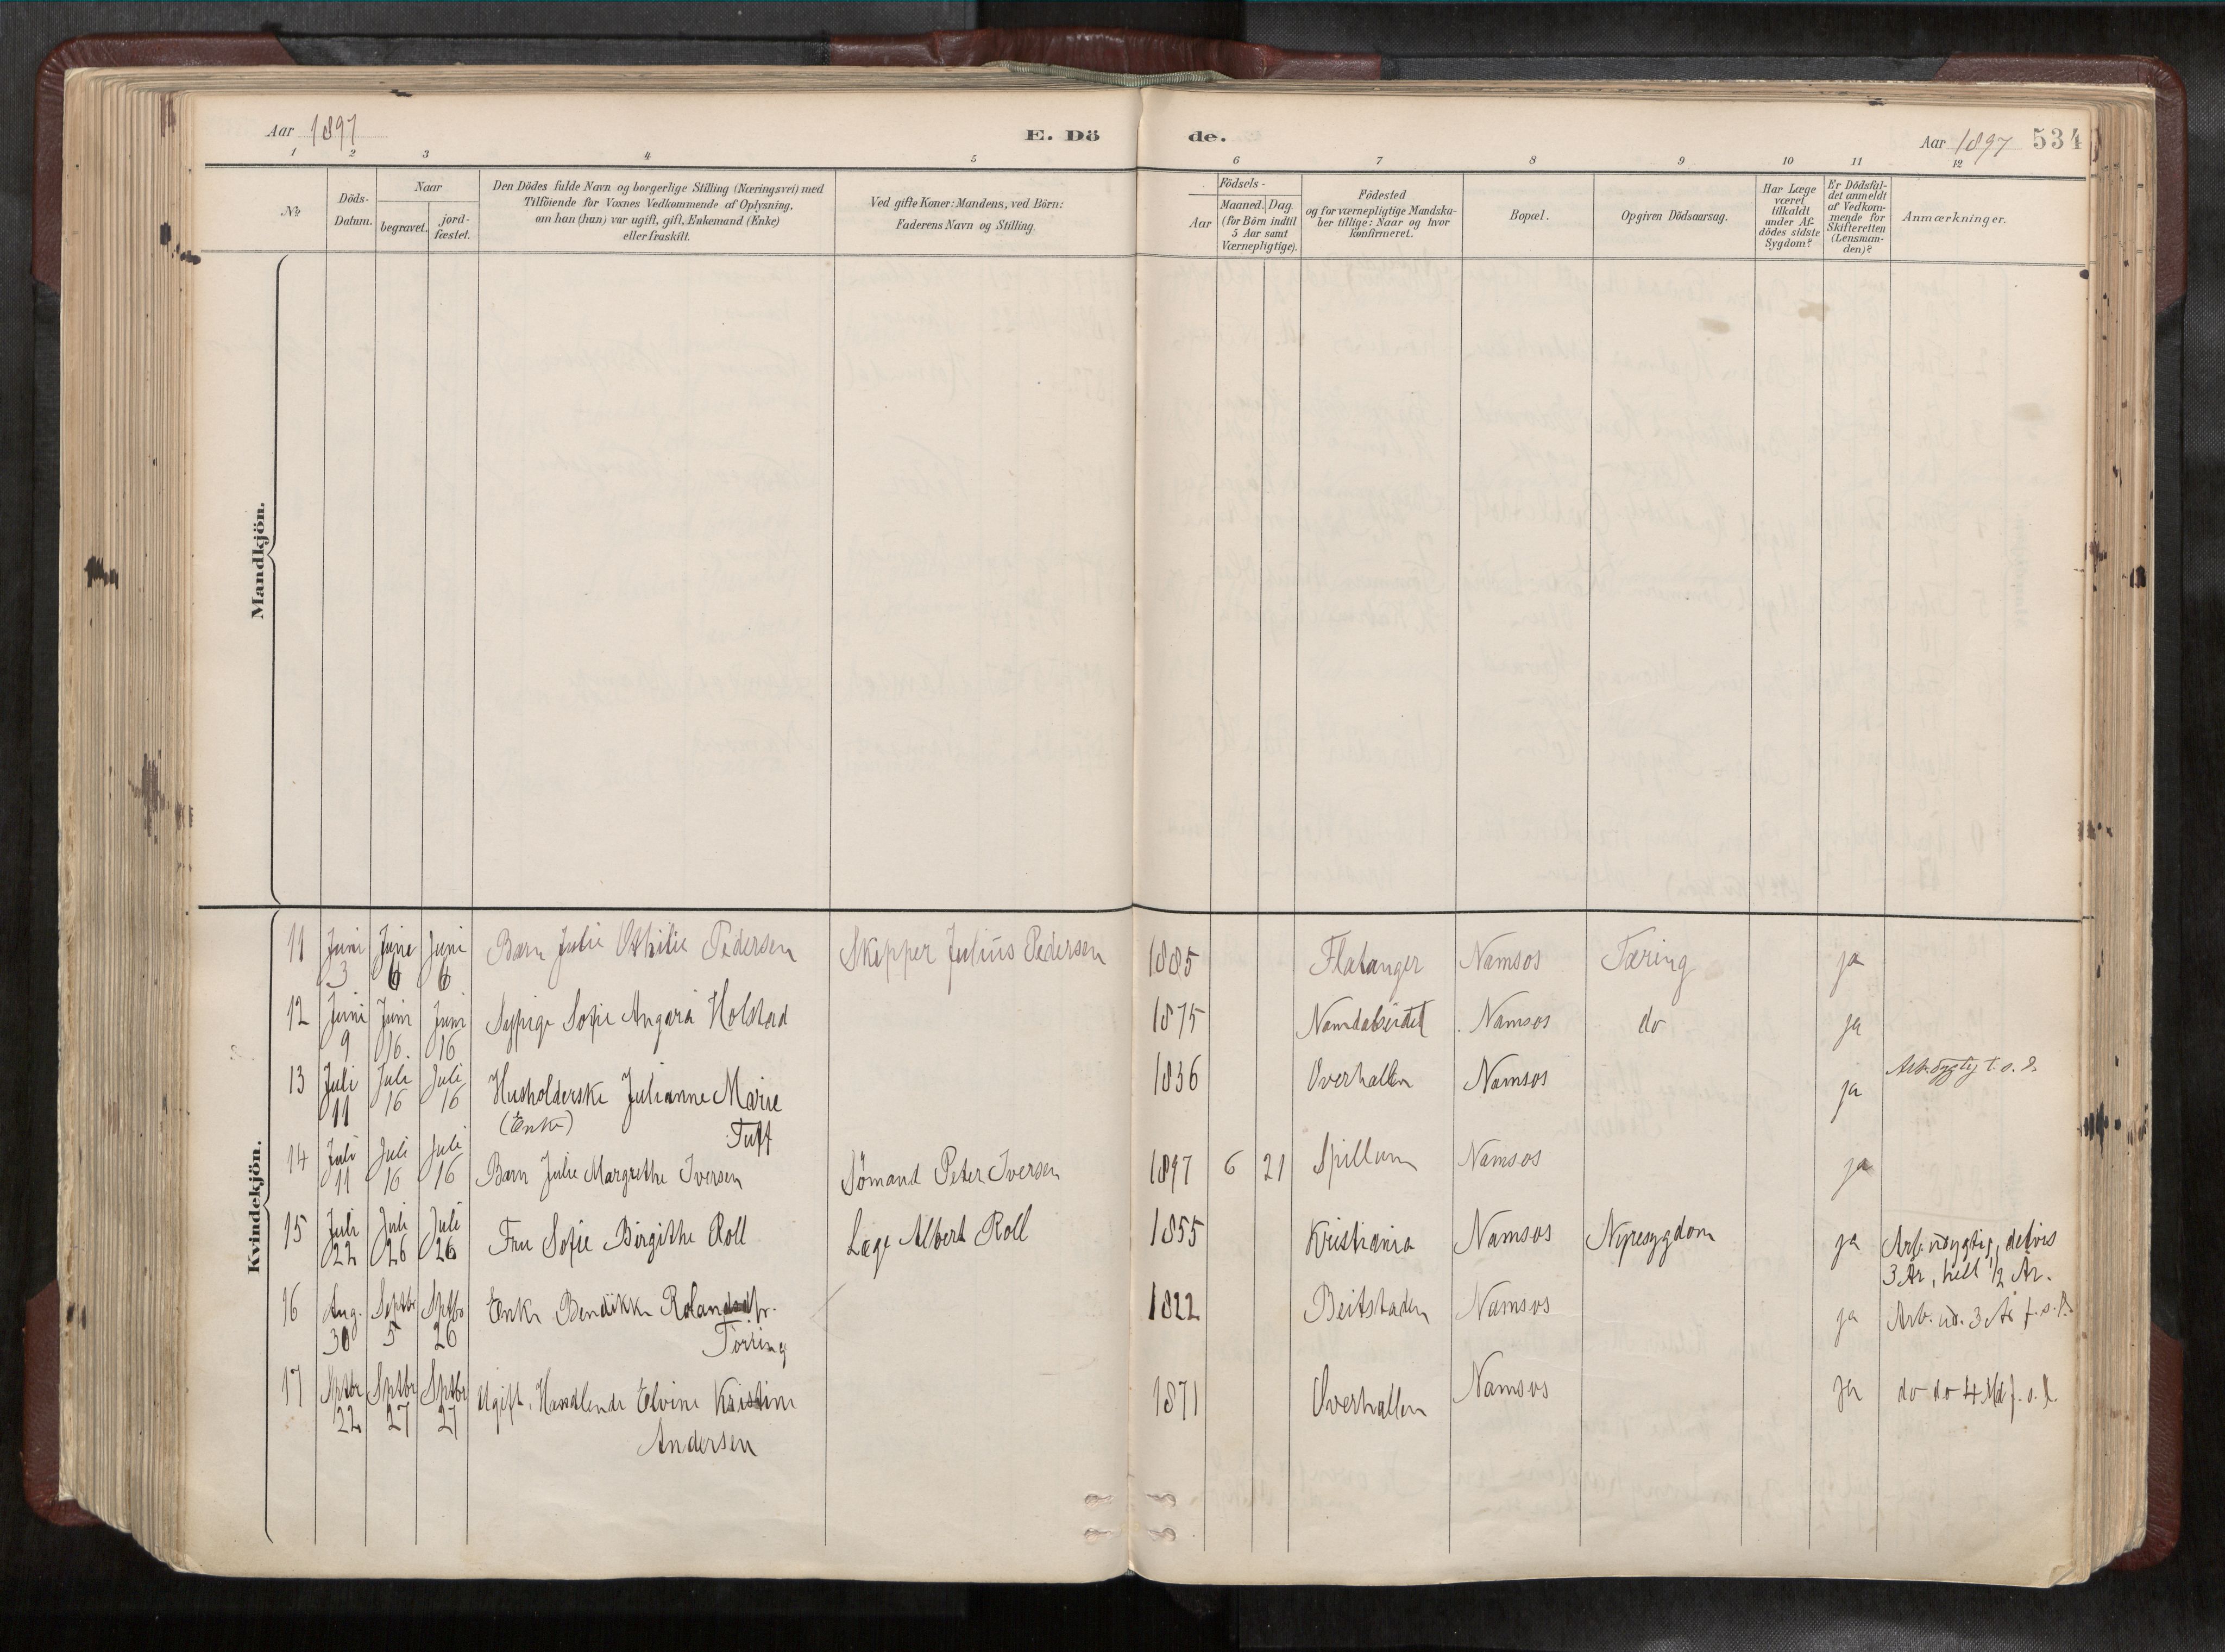 Aar 1897
E. Dö
de.
Aar 1897 534
1 2 3 4 5 6 7 8 9 10 11 12
No
Döds-
Datum.
Naar
begravet.
jord-
fæstet.
Den Dödes fulde Navn og borgerlige Stilling (Næringsvei) med
Tilföiende for Voxnes Vedkommende af Oplysning,
om han (hun) var ugift, gift, Enkemand (Enke)
eller fraskilt.
Ved gifte Koner: Mandens, ved Börn:
Faderens Navn og Stilling.
Födsels-
Aar
Maaned. Dag.
(for Börn indtil
5 Aar samt
Værnepligtige).
Födested
og for værnepligtige Mandska-
ber tillige: Naar og hvor
konfirmeret.
Bopæl.
Opgiven Dödsaarsag.
Har Læge
været
tilkaldt
under Af-
dödes sidste
Sygdom?
Er Dödsfal-
det anmeldt
af Vedkom-
mende for
Skifteretten
(Lensman-
den)?
Anmærkninger.
Mandkjön.
Kvindekjön.
11 Juni Juni Juni Barn Julie Othilie Pedersen Skipper Julius Pedersen 1885 Flatanger Namsos Tæring ja
3 6 6
12 Juni Juni Juni Sypige Sofie Angara Holstad 1875 Namdalseidet Namsos do ja
9 16. 16
13 Juli Juli Juli Husholderske Julianne Marie 1836 Overhallen Namsos ja
11 16 16 (Enke) Tuft
14 Juli Juli Juli Barn Julie Margrethe Iversen Sömand Peter Iversen 1897 6 21 Spillum Namsos ja
11 16 16
15 Juli Juli Juli Fru Sofie Birgithe Roll Læge Albert Roll 1855 Kristiania Namsos Nyresygdom ja Arb. udygtig, delvis
22 26 26 3 År, helt 1/2 År.
16 Aug. Septbr Sptbr Enke Bendikke Rolandsdtr. 1822 Beitstaden Namsos ja Arb. ud. 3 År f. s. D.
30 5 26 Törring
17 Sptbr Sptbr Sptbr Ugift, Handlende Elvine Kristine 1871 Overhallen Namsos ja do do 4 Md f. s. D.
22 27 27 Andersen